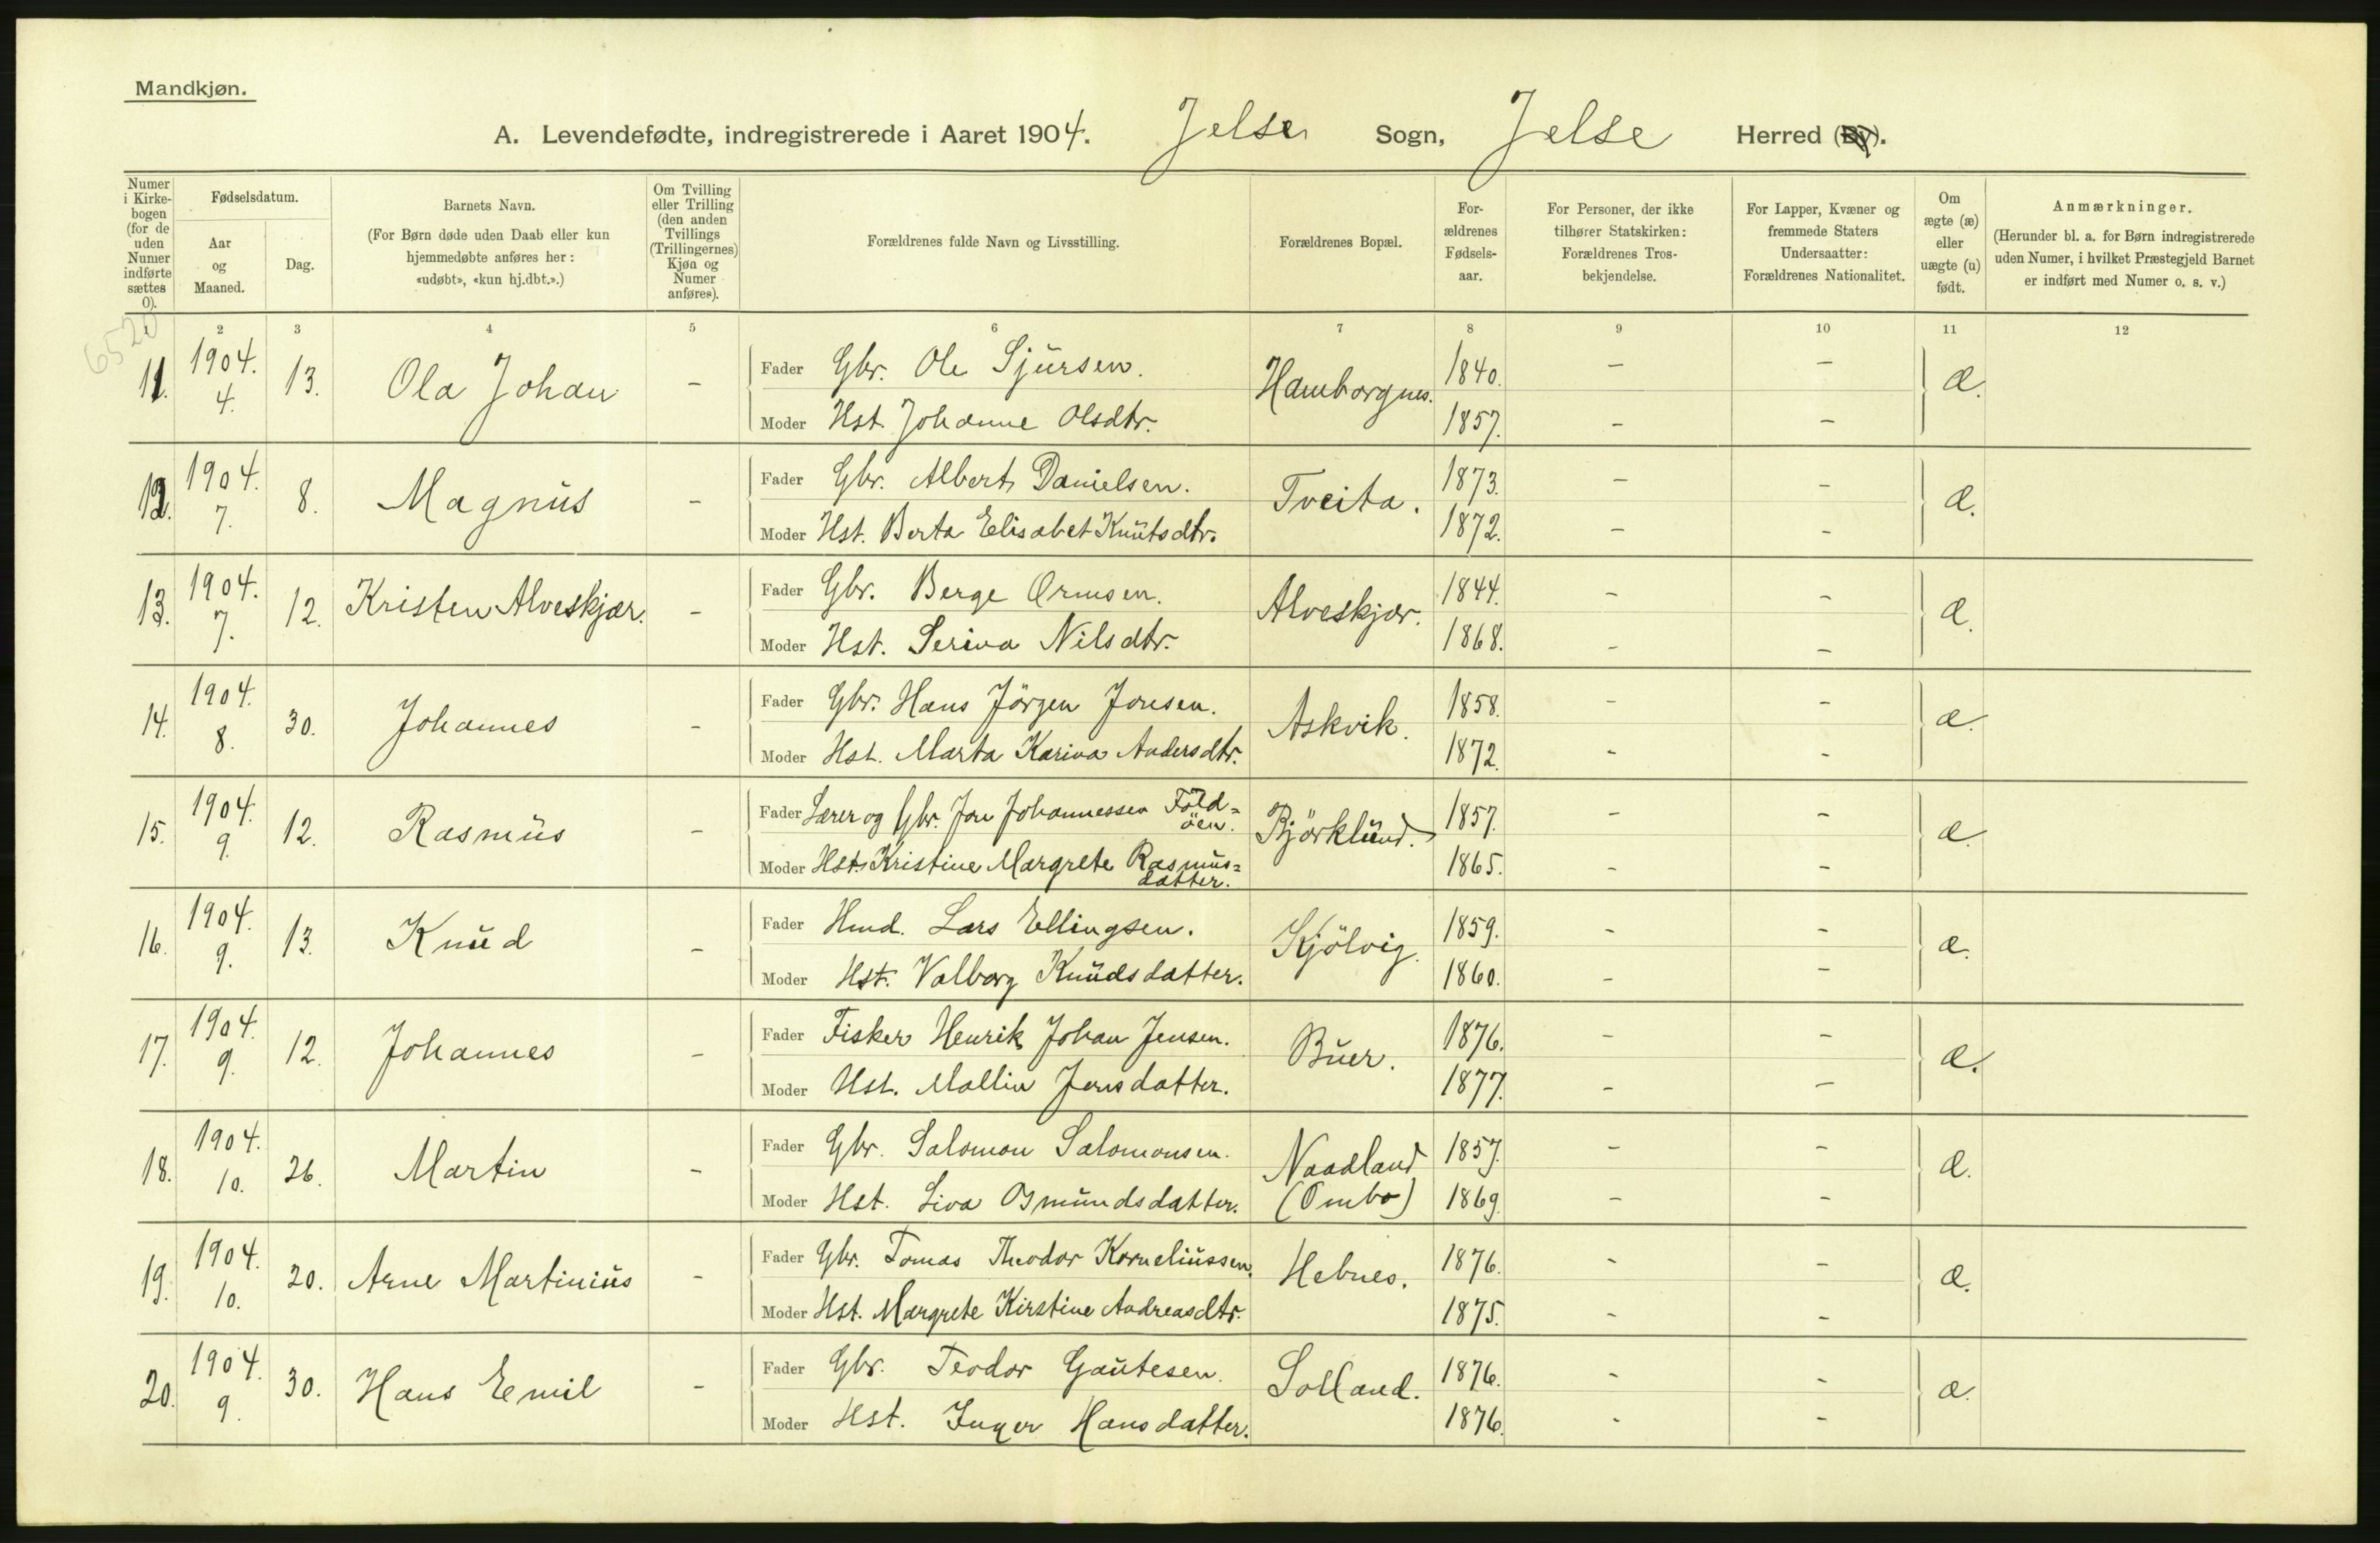 Mandkjøn.
A. Levendefødte, indregistrerede i Aaret 1904. Jelse Sogn, Jelse Herred (By).
Numer i Kirkebogen (for de uden Numer indførte sættes 0).
Fødselsdatum.
Aar og Maaned.
Dag.
Barnets Navn.
(For Børn døde uden Daab eller kun hjemmedøbte anføres her: «udøbt», «kun hj.dbt.».)
Om Tvilling eller Trilling (den anden Tvillings (Trillingernes) Kjøn og Numer anføres).
Forældrenes fulde Navn og Livsstilling.
Forældrenes Bopæl.
Forældrenes Fødselsaar.
For Personer, der ikke tilhører Statskirken: Forældrenes Trosbekjendelse.
For Lapper, Kvæner og fremmede Staters Undersaatter: Forældrenes Nationalitet.
Om ægte (æ) eller uægte (u) født.
Anmærkninger.
(Herunder bl. a. for Børn indregistrerede uden Numer, i hvilket Præstegjeld Barnet er indført med Numer o. s. v.)
6520
1 2 3 4 5 6 7 8 9 10 11 12
11. 1904. 4. 13. Ola Johan - Fader Gbr. Ole Sjursen. Hamborgnes. 1840. - - æ.
Moder Hst. Johanne Olsdtr. 1857. - -
12. 1904. 7. 8. Magnus - Fader Gbr. Albert Danielsen. Tveita. 1873. - - æ.
Moder Hst. Berta Elisabet Knutsdtr. 1872. - -
13. 1904. 7. 12. Kristen Alveskjær. - Fader Gbr. Berge Ormsen. Alveskjær. 1844. - - æ.
Moder Hst. Serina Nilsdtr. 1868. - -
14. 1904. 8. 30. Johannes - Fader Gbr. Hans Jörgen Jonsen. Askvik. 1858. - - æ.
Moder Hst. Marta Karina Andersdtr. 1872. - -
15. 1904. 9. 12. Rasmus - Fader Lærer og Gbr. Jon Johannessen Föld=
öen. Björklund. 1857. - - æ.
Moder Hst. Kristine Margrete Rasmus=
datter. 1865. - -
16. 1904. 9. 13. Knud - Fader Hmd. Lars Ellingsen. Kjölvig. 1859. - - æ.
Moder Hst. Valborg Knudsdatter. 1860. - -
17. 1904. 9. 12. Johannes - Fader Fisker Henrik Johan Jensen. Buer. 1876. - - æ.
Moder Hst. Mallin Jensdatter. 1877. - -
18. 1904. 10. 26. Martin - Fader Gbr. Salomon Salomonsen. Naadland 1857. - - æ.
Moder Hst. Siva Osmundsdatter. (Ombo) 1869. - -
19. 1904. 10. 20. Arne Martinius - Fader Gbr. Tomas Theodor Korneliussen. Hebnes. 1876. - - æ.
Moder Hst. Margrete Kirstine Andreasdtr. 1875. - -
20. 1904. 9. 30. Hans Emil - Fader Gbr. Teodor Gautesen. Solland. 1876. - - æ.
Moder Hst. Inger Hansdatter. 1876. - -